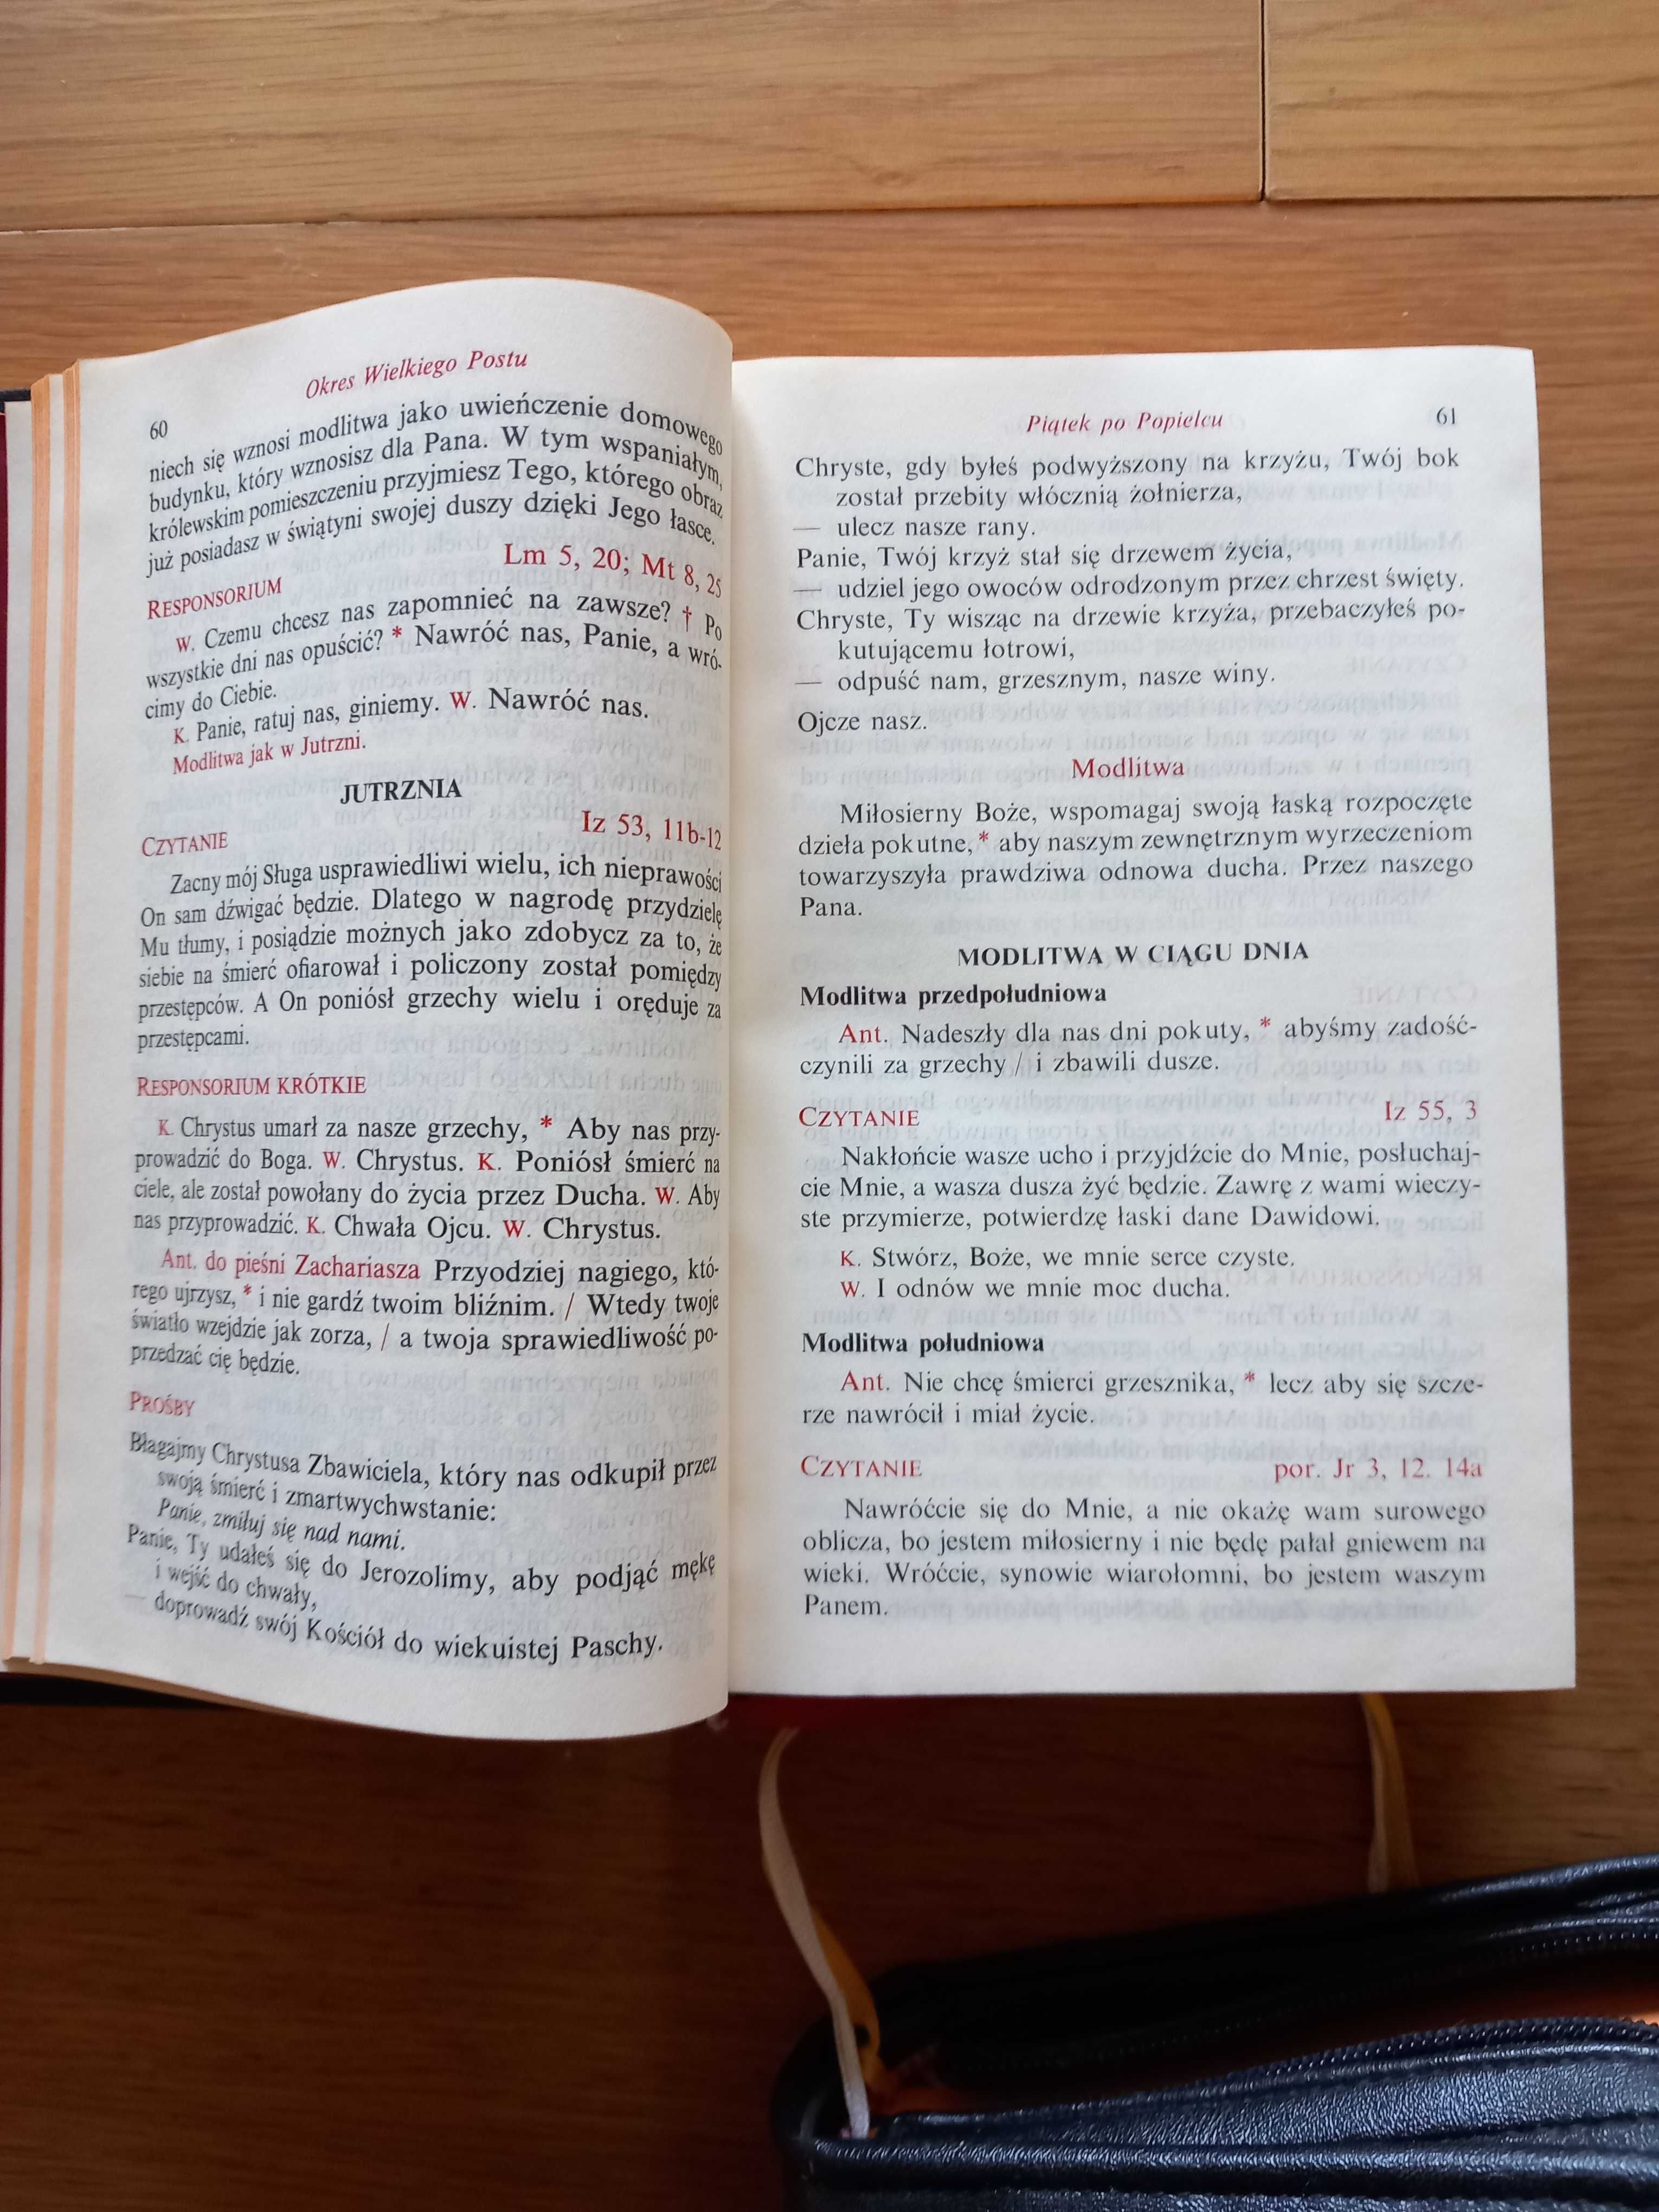 Okres Wielkiego Postu
60
niech się wznosi modlitwa jako uwieńczenie domowego
budynku, który wznosisz dla Pana. W tym wspaniałym,
królewskim pomieszczeniu przyjmiesz Tego, którego obraz
już posiadasz w świątyni swojej duszy dzięki Jego łasce.
RESPONSORIUM Lm 5, 20; Mt 8, 25
W. Czemu chcesz nas zapomnieć na zawsze? † Po
wszystkie dni nas opuścić? * Nawróć nas, Panie, a wró-
cimy do Ciebie.
K. Panie, ratuj nas, giniemy. W. Nawróć nas.
Modlitwa jak w Jutrzni.
JUTRZNIA
CZYTANIE Iz 53, 11b-12
Zacny mój Sługa usprawiedliwi wielu, ich nieprawości
On sam dźwigać będzie. Dlatego w nagrodę przydzielę
Mu tłumy, i posiądzie możnych jako zdobycz za to, że
siebie na śmierć ofiarował i policzony został pomiędzy
przestępców. A On poniósł grzechy wielu i oręduje za
przestępcami.
RESPONSORIUM KRÓTKIE
K. Chrystus umarł za nasze grzechy, * Aby nas przy-
prowadzić do Boga. W. Chrystus. K. Poniósł śmierć na
ciele, ale został powołany do życia przez Ducha. W. Aby
nas przyprowadzić. K. Chwała Ojcu. W. Chrystus.
Ant. do pieśni Zachariasza Przyodziej nagiego, któ-
rego ujrzysz, * i nie gardź twoim bliźnim. / Wtedy twoje
światło wzejdzie jak zorza, / a twoja sprawiedliwość po-
przedzać cię będzie.
PROŚBY
Błagajmy Chrystusa Zbawiciela, który nas odkupił przez
swoją śmierć i zmartwychwstanie:
Panie, zmiłuj się nad nami.
Panie, Ty udałeś się do Jerozolimy, aby podjąć mękę
i wejść do chwały,
— doprowadź swój Kościół do wiekuistej Paschy.
Piątek po Popielcu 61
Chryste, gdy byłeś podwyższony na krzyżu, Twój bok
został przebity włócznią żołnierza,
— ulecz nasze rany.
Panie, Twój krzyż stał się drzewem życia,
— udziel jego owoców odrodzonym przez chrzest święty.
Chryste, Ty wisząc na drzewie krzyża, przebaczyłeś po-
kutującemu łotrowi,
— odpuść nam, grzesznym, nasze winy.
Ojcze nasz.
Modlitwa
Miłosierny Boże, wspomagaj swoją łaską rozpoczęte
dzieła pokutne, * aby naszym zewnętrznym wyrzeczeniom
towarzyszyła prawdziwa odnowa ducha. Przez naszego
Pana.
MODLITWA W CIĄGU DNIA
Modlitwa przedpołudniowa
Ant. Nadeszły dla nas dni pokuty, * abyśmy zadość-
czynili za grzechy / i zbawili dusze.
CZYTANIE Iz 55, 3
Nakłońcie wasze ucho i przyjdźcie do Mnie, posłuchaj-
cie Mnie, a wasza dusza żyć będzie. Zawrę z wami wieczy-
ste przymierze, potwierdzę łaski dane Dawidowi.
K. Stwórz, Boże, we mnie serce czyste.
W. I odnów we mnie moc ducha.
Modlitwa południowa
Ant. Nie chcę śmierci grzesznika, * lecz aby się szcze-
rze nawrócił i miał życie.
CZYTANIE por. Jr 3, 12. 14a
Nawróćcie się do Mnie, a nie okażę wam surowego
oblicza, bo jestem miłosierny i nie będę pałał gniewem na
wieki. Wróćcie, synowie wiarołomni, bo jestem waszym
Panem.